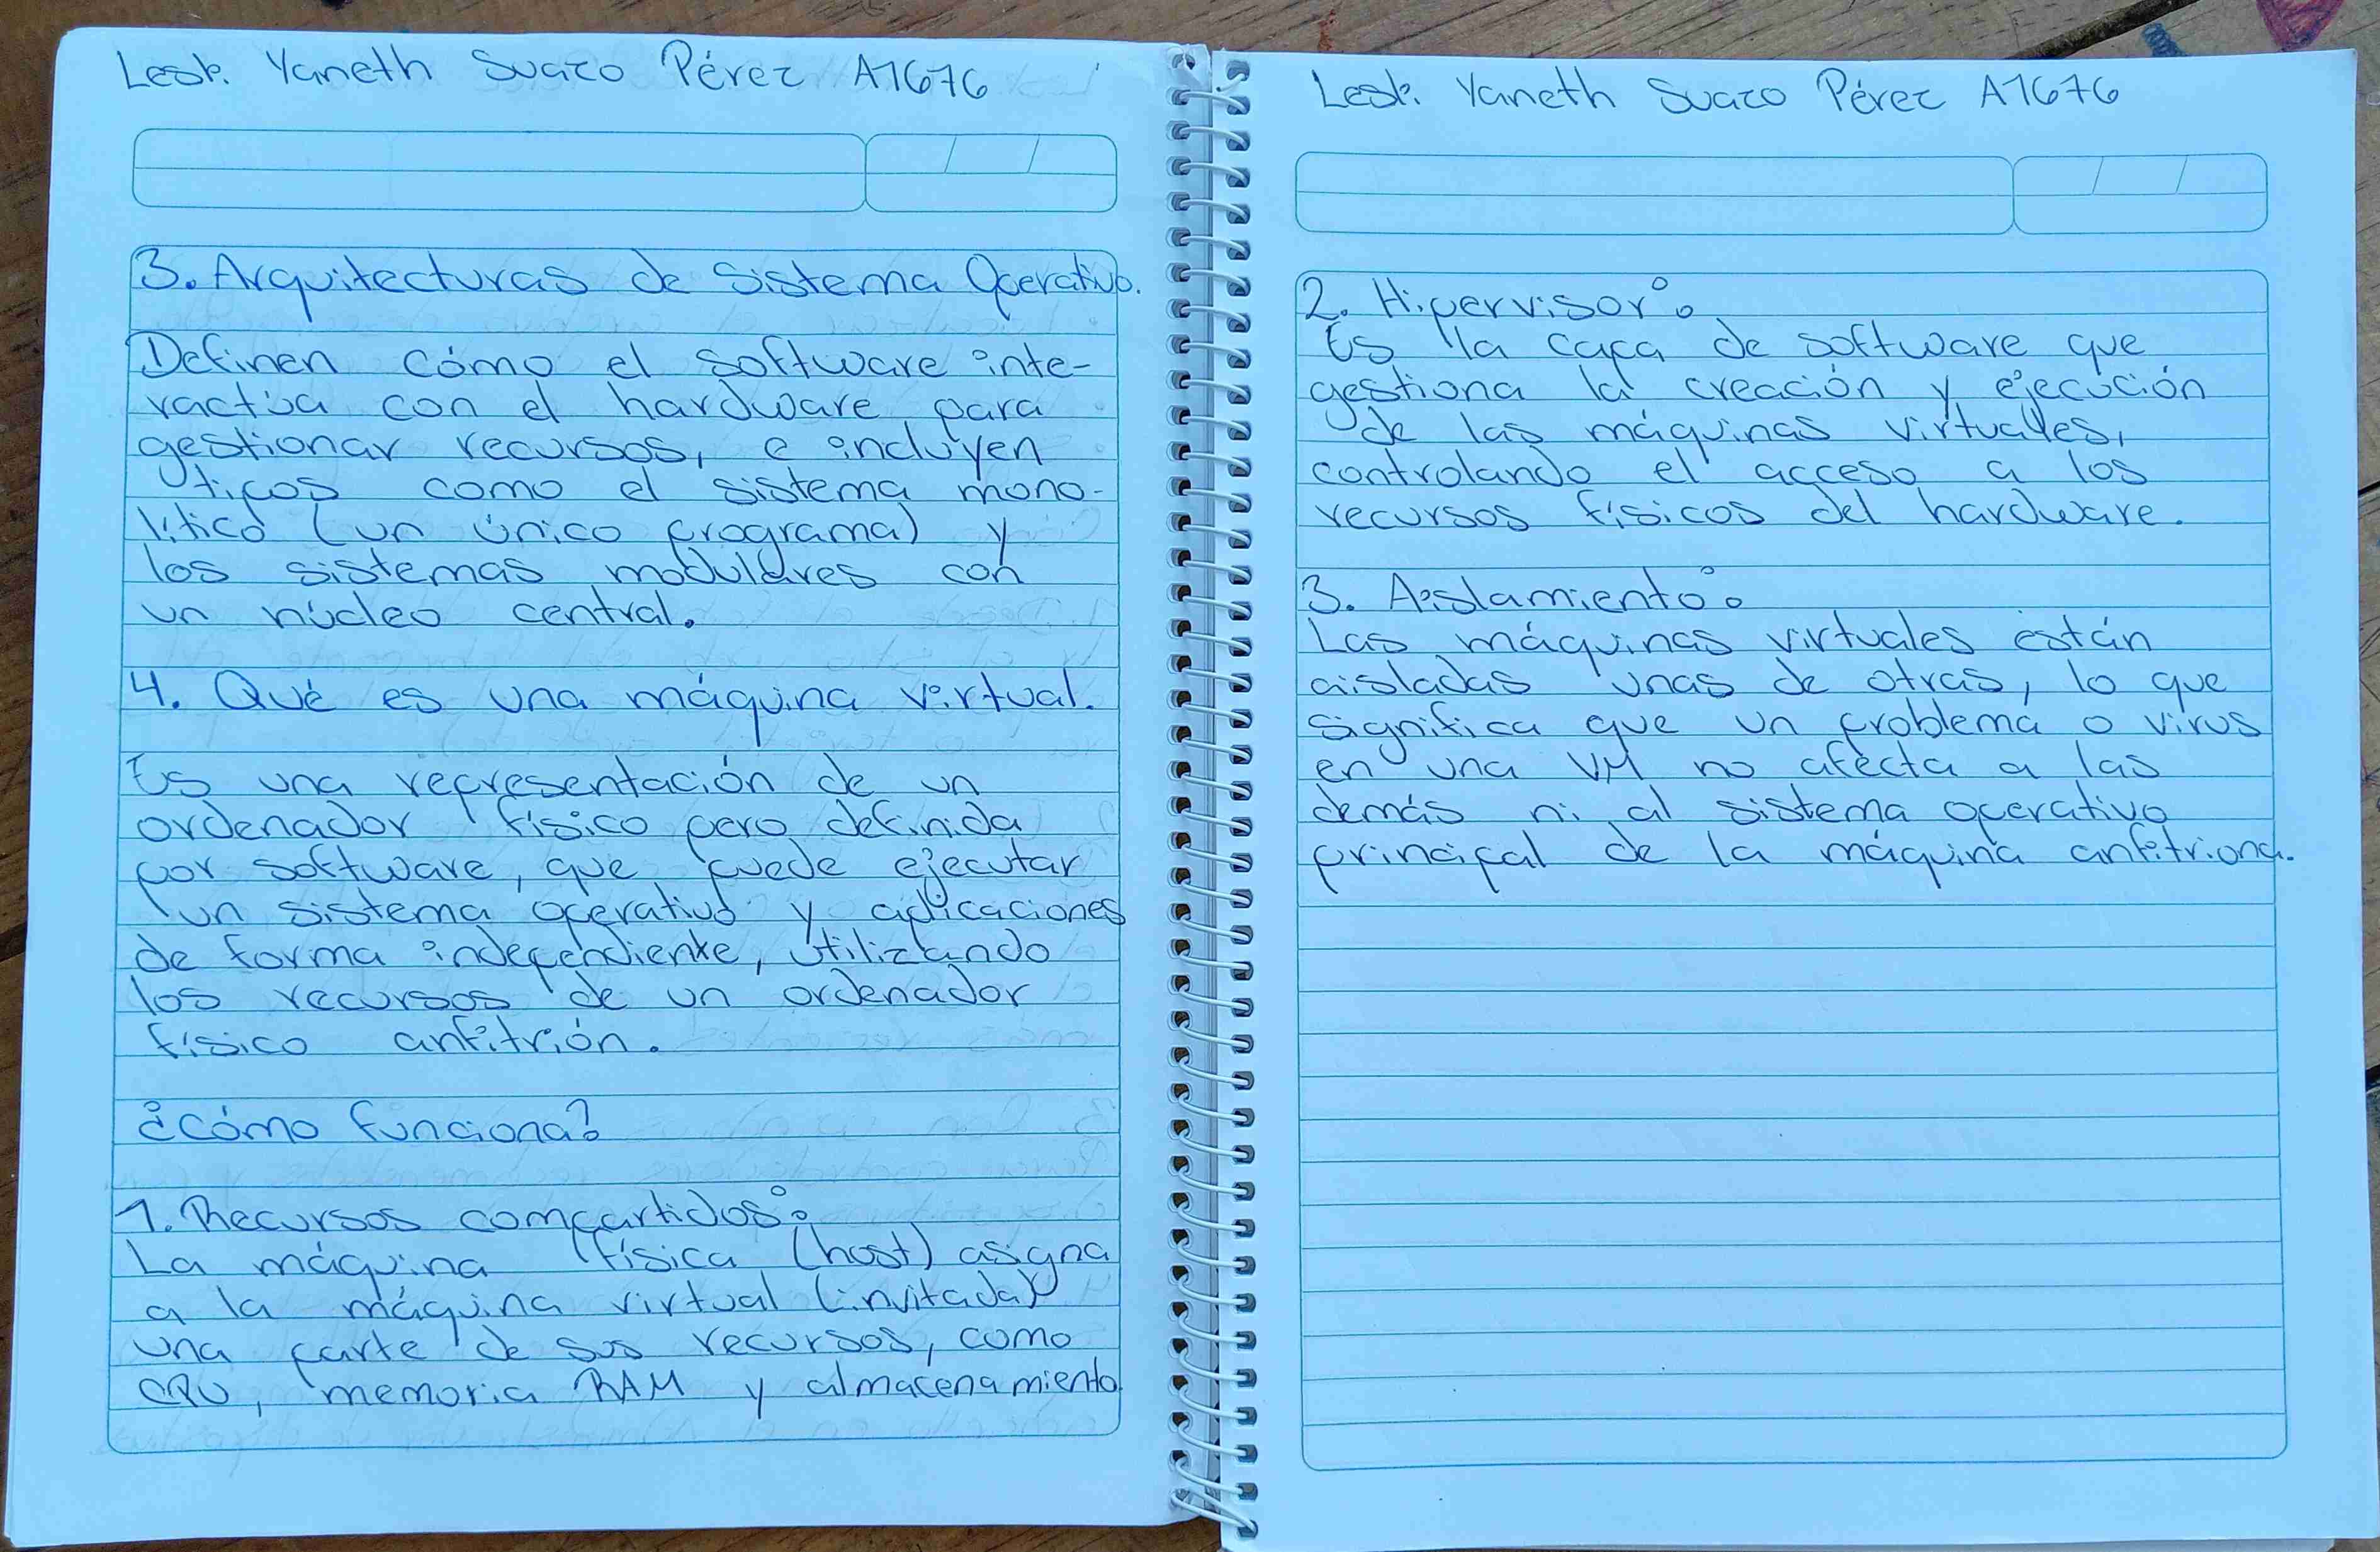 Lesli Yaneth Suazo Pérez A1676
3. Arquitecturas de Sistema Operativo.
Definen cómo el software inte-
ractúa con el hardware para
gestionar recursos, e incluyen
tipos como el sistema mono-
lítico (un único programa) y
los sistemas modulares con
un núcleo central.
4. Qué es una máquina virtual.
Es una representación de un
ordenador físico pero definida
por software, que puede ejecutar
un sistema operativo y aplicaciones
de forma independiente, utilizando
los recursos de un ordenador
físico anfitrión.
¿Cómo funciona?
1. Recursos compartidos:
La máquina física (host) asigna
a la máquina virtual (invitada)
una parte de sus recursos, como
CPU, memoria RAM y almacenamiento
Lesli Yaneth Suazo Pérez A1676
2. Hipervisor:
Es la capa de software que
gestiona la creación y ejecución
de las máquinas virtuales,
controlando el acceso a los
recursos físicos del hardware.
3. Aislamiento:
Las máquinas virtuales están
aisladas unas de otras, lo que
significa que un problema o virus
en una VM no afecta a las
demás ni al sistema operativo
principal de la máquina anfitriona.